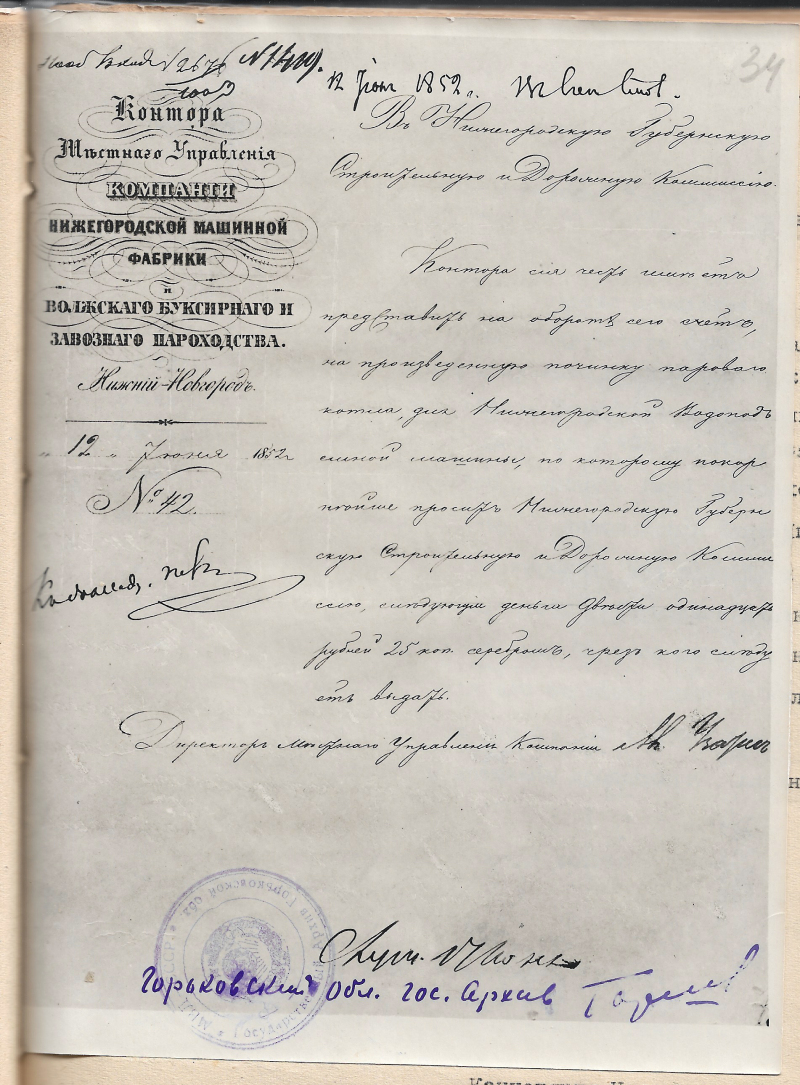 № 1419.
34
12 Июн 1852 г.
Контора
Мѣстнаго Управленія
КОМПАНІИ
НИЖЕГОРОДСКОЙ МАШИННОЙ
ФАБРИКИ
и
ВОЛЖСКАГО БУКСИРНАГО И
ЗАВОЗНАГО ПАРОХОДСТВА.
Нижній-Новгородъ.
„ 12 „ Іюня 1852 г.
№ 42.
Въ Нижегородскую Губернскую
Строительную и Дорожную Коммиссію.
Контора сія честь имѣетъ
представить на оборотѣ сего счетъ,
на произведенную починку пароваго
котла, для Нижегородской Водоподъ
емной машины, по которому покор
нѣйше проситъ Нижегородскую Губерн
скую Строительную и Дорожную Комми
ссію, слѣдующія деньги двѣсти одинадцать
рублей 25 коп. серебромъ, чрезъ кого слѣду
етъ выдать.
Директоръ мѣстнаго Управленія Компаніи
Горьковский Обл. гос. Архив